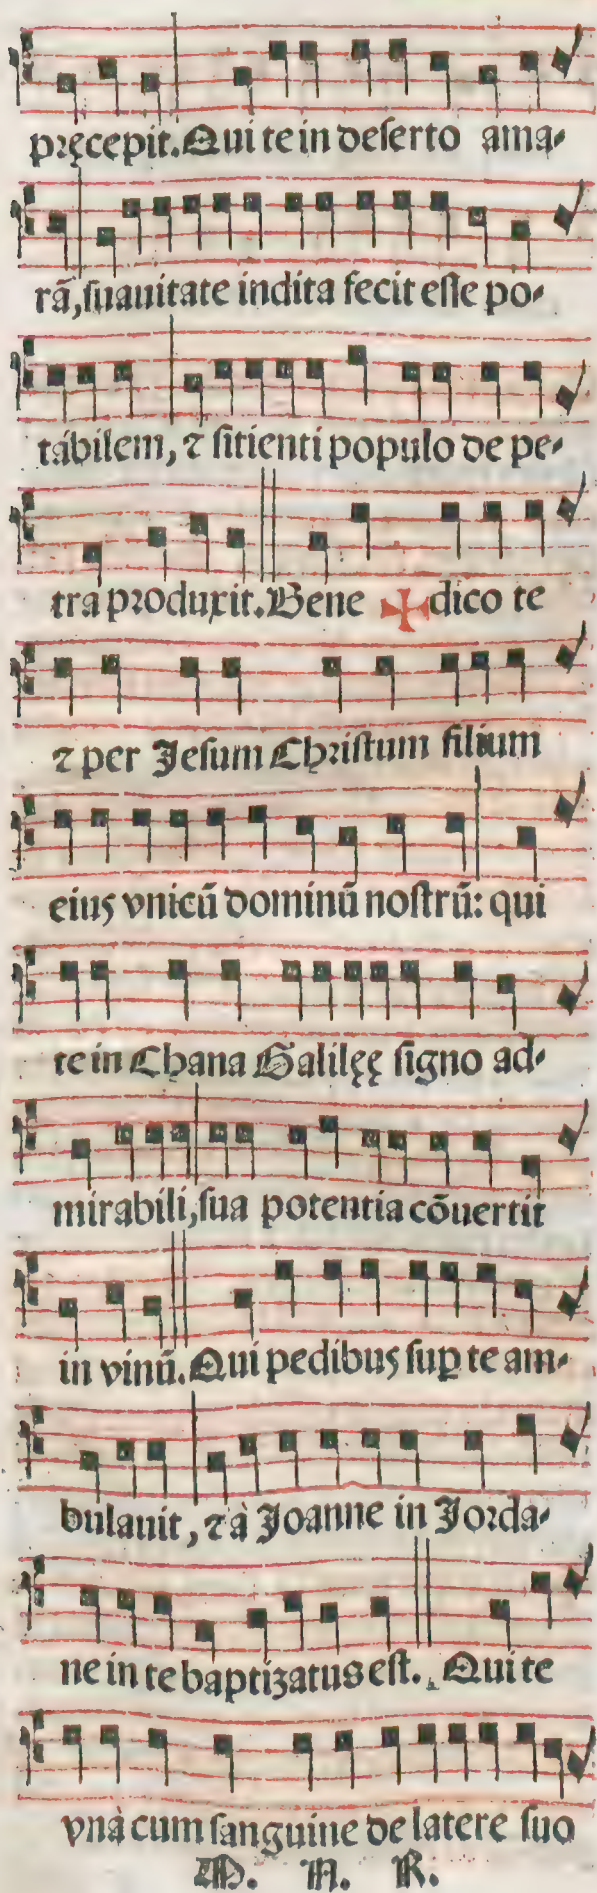 pręcepit. Qui te in deserto ama⸗
rā, suauitate indita fecit esse po⸗
tábilem, ⁊ sitienti populo de pe⸗
tra produxit. Bene ✠dico te
⁊ per Jesum Christum filium
eius vnicū dominū nostrū: qui
te in Chana Galilęę signo ad⸗
mirabili, sua potentia cōuertit
in vinū. Qui pedibus sup te am⸗
bulauit, ⁊ à Joanne in Jorda⸗
ne in te baptizatus est. Qui te
vnà cum sanguine de latere suo
M. N. R.